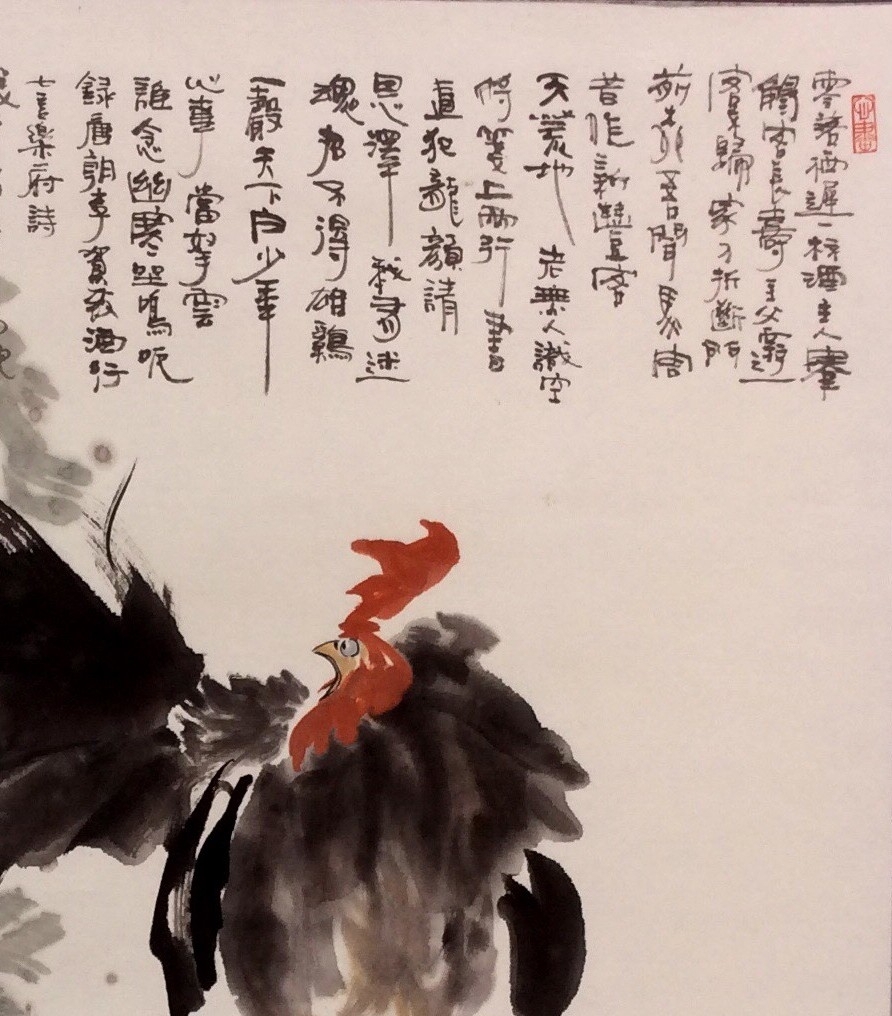 零落栖遲一杯酒主人奉
觴客長壽主父西遊
困不歸家人折斷門
前柳吾聞馬周
昔作新豐客
天荒地老無人識空
將箋上兩行書
直犯龍顏請
恩澤我有迷
魂招不得雄鷄
一聲天下白少年
心事當拏雲
誰念幽寒坐鳴呃
録唐朝李賀致酒行
七言樂府詩